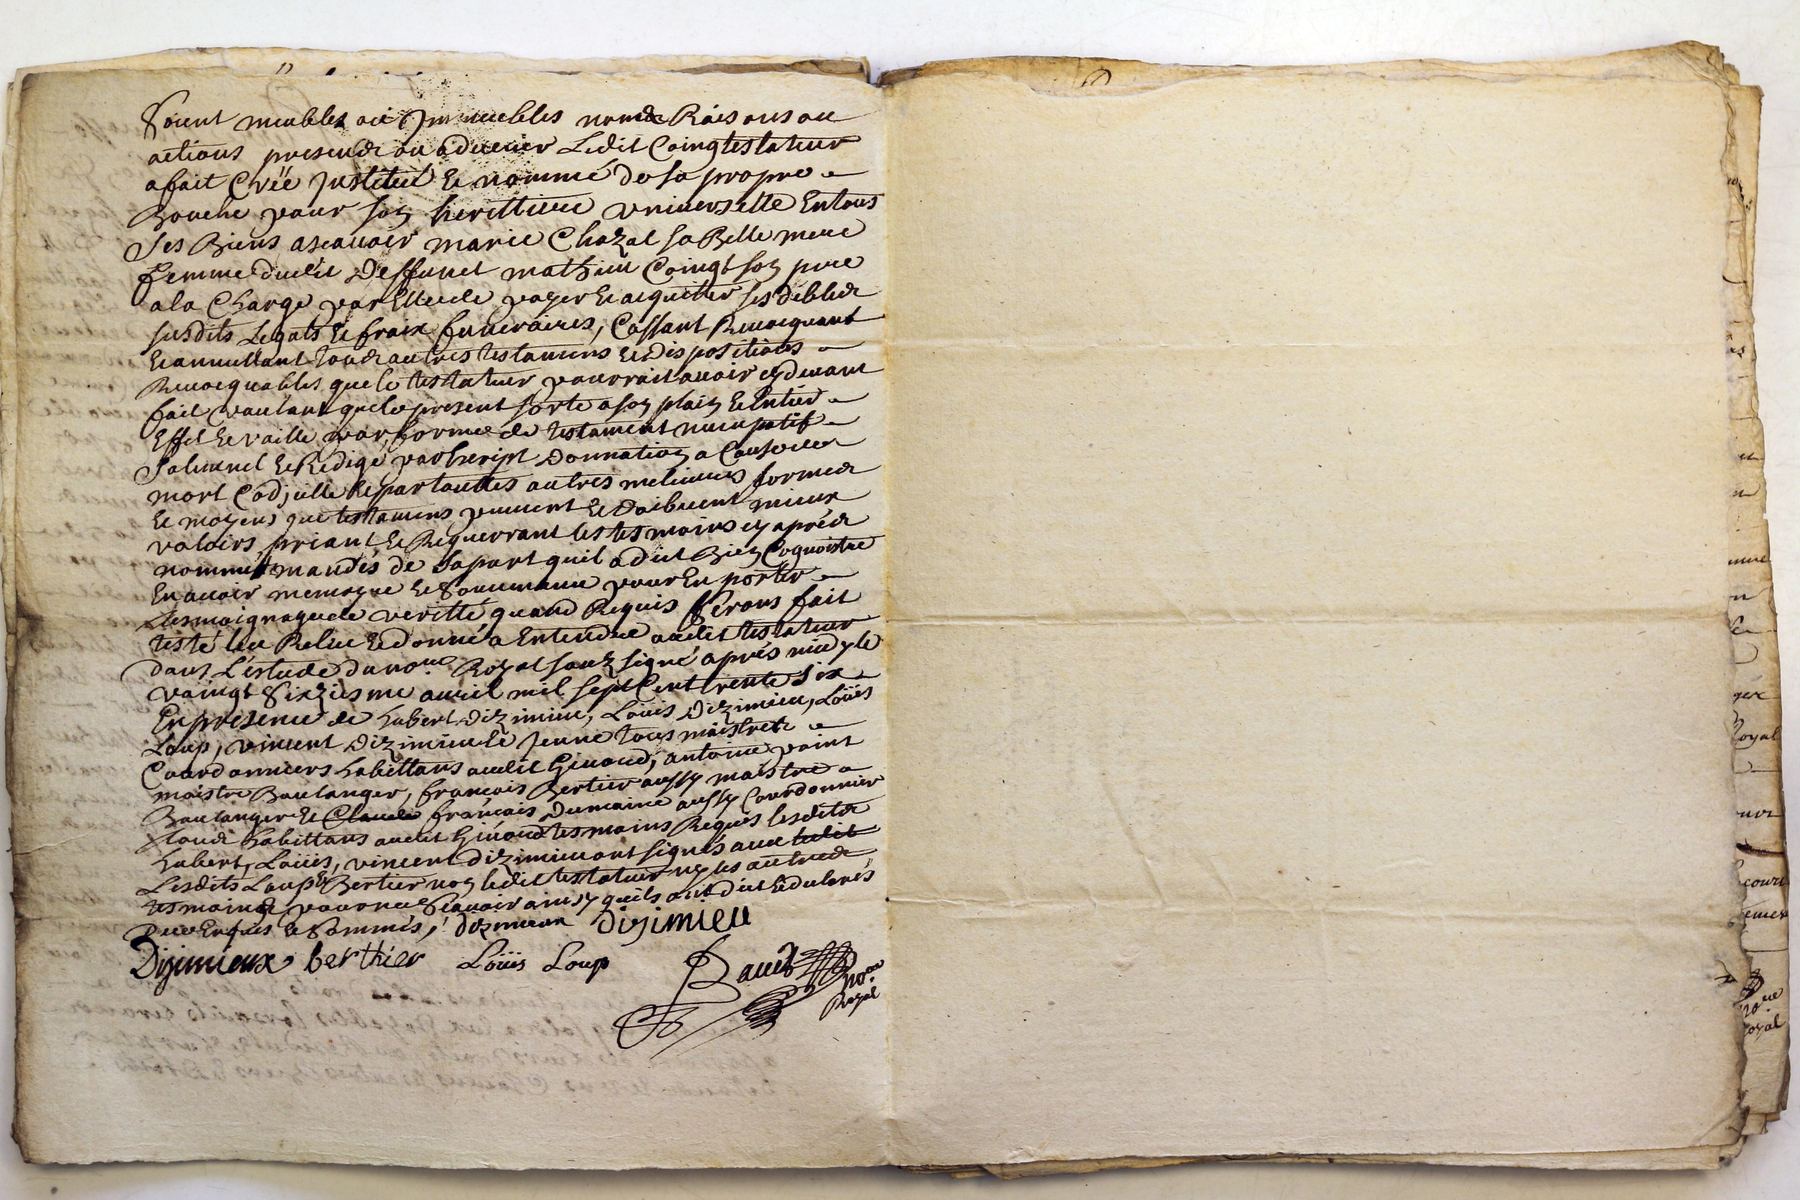 Soient meubles ou Jmmeubles noms Raisons ou
actions presends ou aduenir Ledit Coingtestateur
a fait Créé Jnstitué & nommé de sa propre
Bouche pour son herittiere vniverselle En tous
Ses Biens ascauoir marie Chazal sa Belle mere
femme dudit Deffunct mathieu Coingt son pere
a la Charge par Elle de payer & acquitter ses debtes
susdits Legats & fraix funeraires, Cassant Reuocquant
& annullant tous autres testamens & dispositions
Reuocquables que le testateur pourrait auoir cy deuant
fait voulant que le present sorte a son plain & Entier
Effet & vaille par forme de testament nuncupatif
Solennel & Redigé par Escript Donnation a Cause de
mort Codjcille & par touttes autres melieures formes
& moyens que testamens peuuent & doibuent mieux
valoirs, priant & Requerrant les tesmoins cy aprés
nommés mandés de sa part quil a dit Bien Cognoistre
En auoir memoyre & Souuenance pour En porter
tesmoignage de veritté quand Requis seront fait
testé leu Releu & donné a Entendre audit testateur
dans L'estude du nore Royal souz signé aprés midy le
vaingt Sixziesme auril mil sept Cent trente six
En presence de hubert Dizimieu, Loüis Dizimieu, Loüis
Loup, vincent Dizimieu le Jeune tous maistres
Courdonniers habittans audit Giuord, antoine point
maistre Boulanger, françois Bertier aussy maistre
Boulanger & Claude françois Dumaine aussy Courdonnier
tous habittans audit Giuord tesmoins Requis lesdits
hubert, Loüis, vincent dizimieu ont signés auec ledit
Lesdits Loup & Bertier non ledit testateur ny les autres
tesmoins pour ne Scauoir ainsy quils ont dit & declarés
De ce Enquis & Sommés, dizimieux Dizimieu
Dizimieux berthier Loüis Loup
nore
Royal